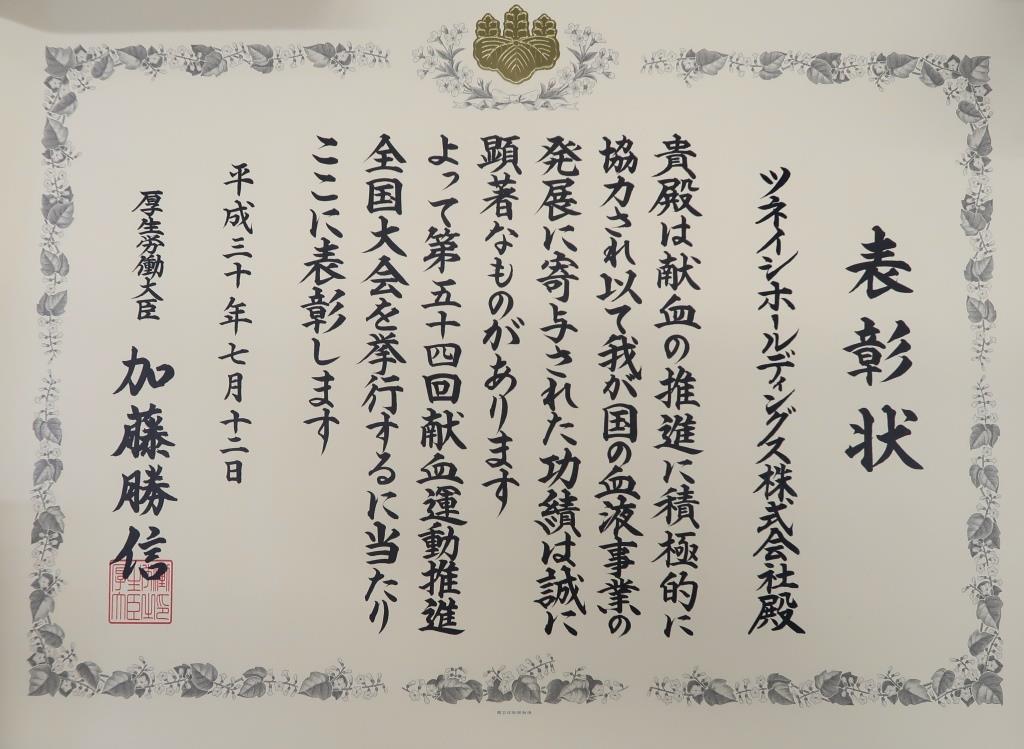 表彰状
ツネイシホールディングス株式会社殿
貴殿は献血の推進に積極的に
協力され以て我が国の血液事業の
発展に寄与された功績は誠に
顕著なものがあります
よって第五十四回献血運動推進
全国大会を挙行するに当たり
ここに表彰します
平成三十年七月十二日
厚生労働大臣
加藤勝信